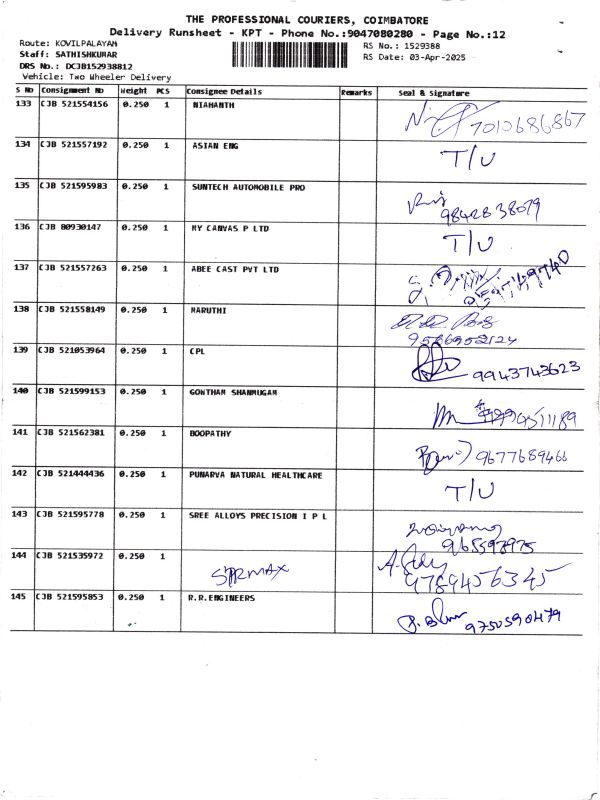 THE PROFESSIONAL COURIERS, COIMBATORE
Delivery Runsheet - KPT - Phone No.:9047080280 - Page No.:12
Route: KOVILPALAYAM
RS No.: 1529388
Staff: SATHISHKUMAR
RS Date: 03-Apr-2025
DRS No.: DCJB152938812
Vehicle: Two Wheeler Delivery
S No Consignment No Weight PCS Consignee Details Remarks Seal & Signature
133 CJB 521554156 0.250 1 NIAHANTH 7010686867
134 CJB 521557192 0.250 1 ASIAN ENG T/U
135 CJB 521595983 0.250 1 SUNTECH AUTOMOBILE PRO 9842838079
136 CJB 80930147 0.250 1 MY CANVAS P LTD T/U
137 CJB 521557263 0.250 1 ABEE CAST PVT LTD
138 CJB 521558149 0.250 1 MARUTHI 9566952124
139 CJB 521053964 0.250 1 CPL 9943743623
140 CJB 521599153 0.250 1 GONTHAM SHANMUGAM
141 CJB 521562381 0.250 1 BOOPATHY 9677689466
142 CJB 521444436 0.250 1 PUNARVA NATURAL HEALTHCARE T/U
143 CJB 521595778 0.250 1 SREE ALLOYS PRECISION I P L
144 CJB 521535972 0.250 1 9789456345
145 CJB 521595853 0.250 1 R.R.ENGINEERS 9750590479